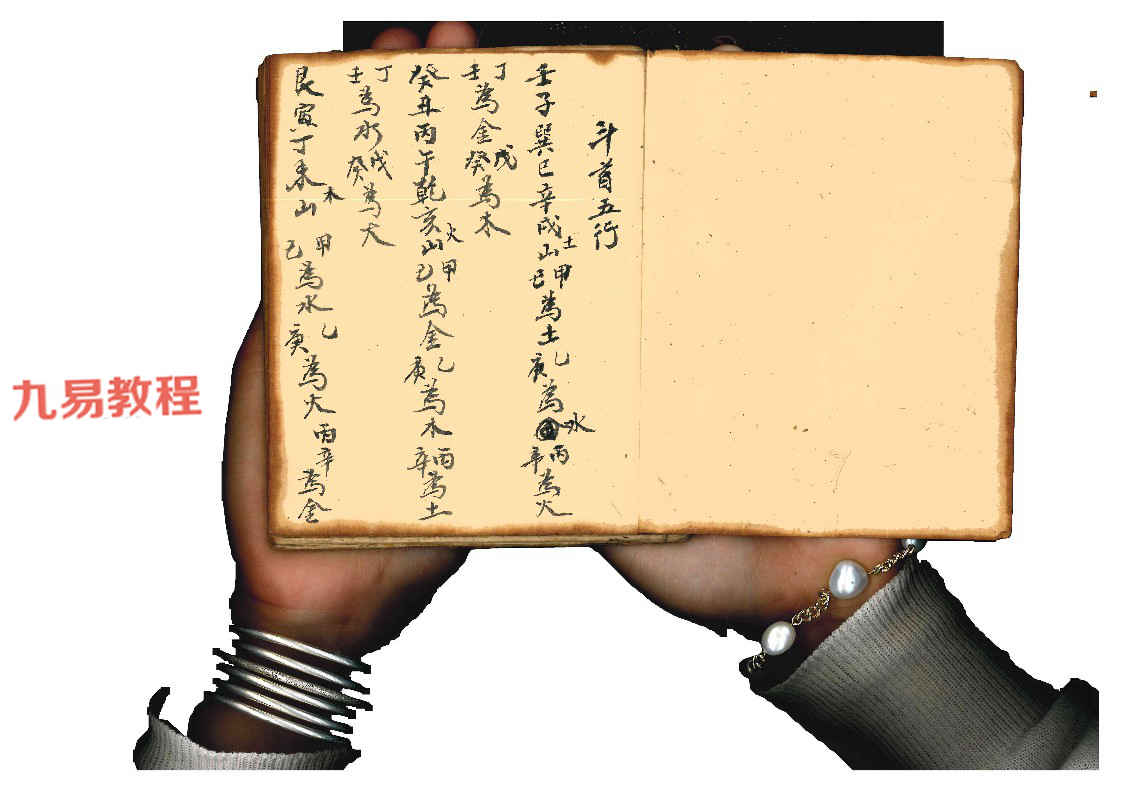 斗首五行
壬子巽巳辛戌山土甲己為土乙庚為水丙辛為火
丁壬為金戊癸為木
癸丑丙午乾亥山火甲己為金乙庚為木丙辛為土
丁壬為水戊癸為火
艮寅丁未山木甲己為水乙庚為火丙辛為金
九易教程